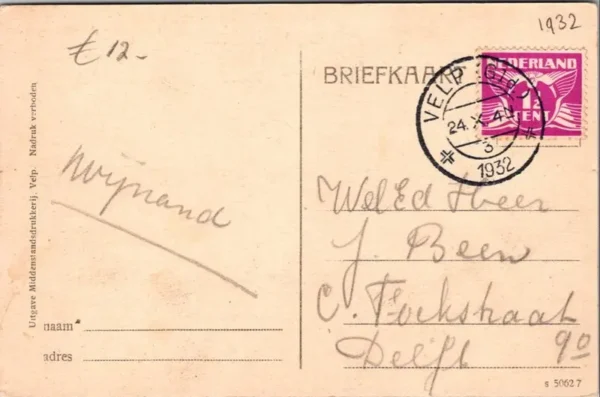 1932
€ 12-
BRIEFKAART
NEDERLAND
1½
CENT
VELP (Gld.)
24.X.4N
3
1932
Uitgave Middenstandsdrukkerij, Velp. Nadruk verboden
Wijnand
Wel Ed Heer
J. Been
C. Fockstraat
90
Delft
naam
adres
s 5062 7